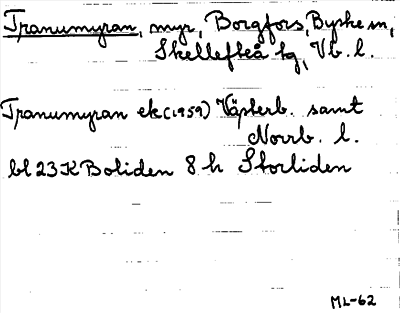 Tranumyran, myr, Borgfors, Byske sn,
Skellefteå tg, Vb. l.
Tranumyran ek (1959) Västerb. samt
Norrb. l.
bl 23 K Boliden 8 h Storliden
ML-62